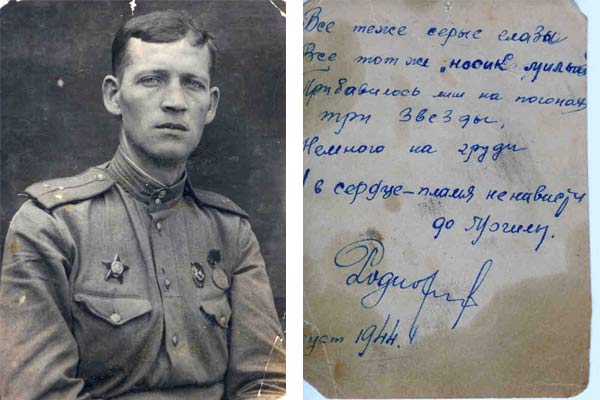 Все теже серые глазы
Все тот же „носик милый
Прибавилось лиш на погонах
три звезды,
Немного на груди
И в сердце – пламя ненависти
до могилы.
Родион
уст 1944.